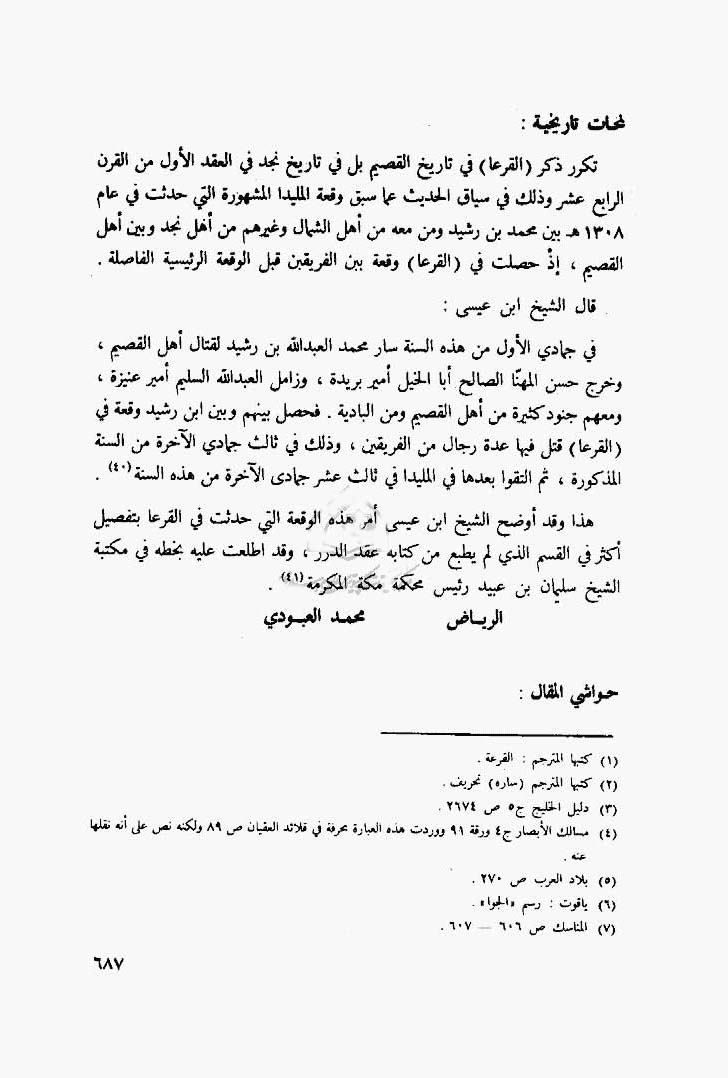 لمحات تاريخية :
تكرر ذكر (القرعا) في تاريخ القصيم بل في تاريخ نجد في العقد الأول من القرن
الرابع عشر وذلك في سياق الحديث عما سبق وقعة المليدا المشهورة التي حدثت في عام
١٣٠٨ هـ بين محمد بن رشيد ومن معه من أهل الشمال وغيرهم من أهل نجد وبين أهل
القصيم ، إذْ حصلت في (القرعا) وقعة بين الفريقين قبل الوقعة الرئيسية الفاصلة .
قال الشيخ ابن عيسى :
في جمادي الأول من هذه السنة سار محمد العبدالله بن رشيد لقتال أهل القصيم ،
وخرج حسن المهنّا الصالح أبا الخيل أمير بريدة ، وزامل العبدالله السليم أمير عنيزة ،
ومعهم جنود كثيرة من أهل القصيم ومن البادية . فحصل بينهم وبين ابن رشيد وقعة في
(القرعا) قتل فيها عدة رجال من الفريقين ، وذلك في ثالث جمادي الآخرة من السنة
المذكورة ، ثم التقوا بعدها في المليدا في ثالث عشر جمادى الآخرة من هذه السنة(٤٠) .
هذا وقد أوضح الشيخ ابن عيسى أمر هذه الوقعة التي حدثت في القرعا بتفصيل
أكثر في القسم الذي لم يطبع من كتابه عقد الدرر ، وقد اطلعت عليه بخطه في مكتبة
الشيخ سليمان بن عبيد رئيس محكمة مكة المكرمة(٤١) .
الرياض محمد العبودي
حواشي المقال :
(١) كتبها المترجم : القرعة .
(٢) كتبها المترجم (ساره) تحريف .
(٣) دليل الخليج ج٥ ص ٢٦٧٤ .
(٤) مسالك الأبصار ج٤ ورقة ٩١ ووردت هذه العبارة محرفة في قلائد العقيان ص ٨٩ ولكنه نص على أنه نقلها
عنه .
(٥) بلاد العرب ص ٢٧٠ .
(٦) ياقوت : رسم «الجوا» .
(٧) المناسك ص ٦٠٦ — ٦٠٧ .
٦٨٧